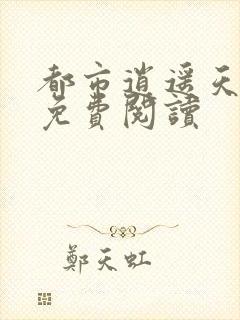 都市逍遥天
免費閱讀
鄭天虹